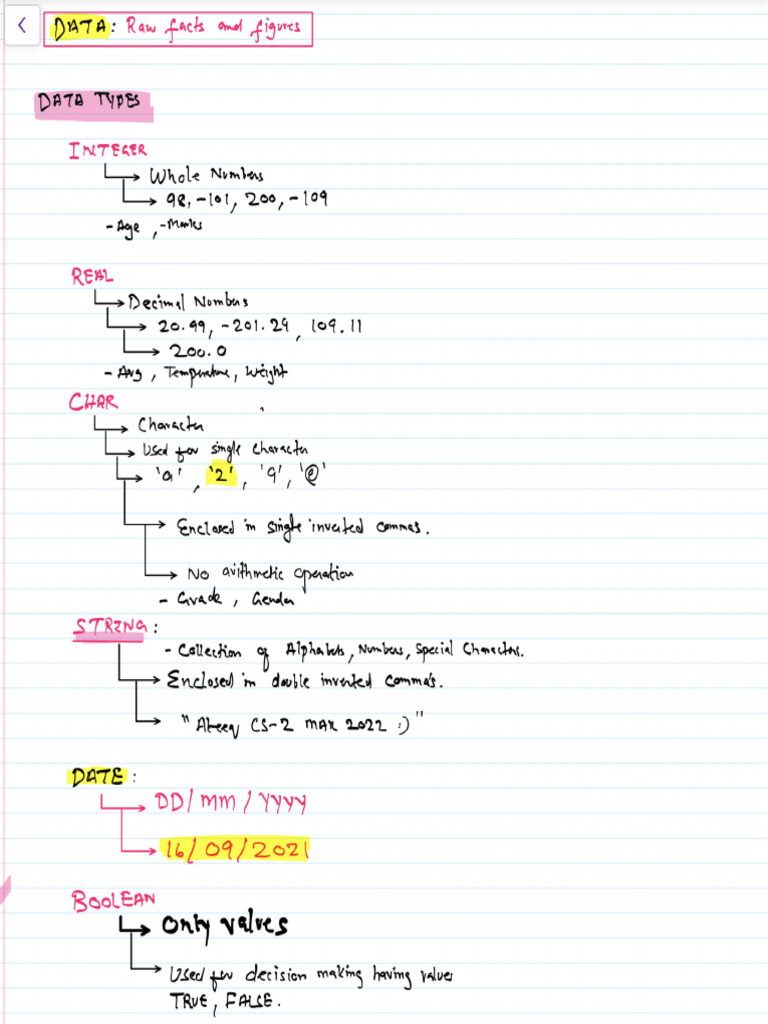 DATA: Raw facts and figures
DATA TYPES
INTEGER
Whole Numbers
98, -101, 200, -109
- Age , - Marks
REAL
Decimal Numbers
20.99, -201.29, 109.11
200.0
- Avg , Temperature, Weight
CHAR
Character
Used for single character
'a' , '2' , '9' , '@'
Enclosed in single inverted commas.
No arithmetic operation
- Grade , Gender
STRING:
- Collection of Alphabets, Numbers, Special Characters.
Enclosed in double inverted comma's.
" Ateeq CS-2 MAR 2022 :) "
DATE:
DD/MM/YYYY
16/09/2021
BOOLEAN
Only values
Used for decision making having values
TRUE, FALSE.